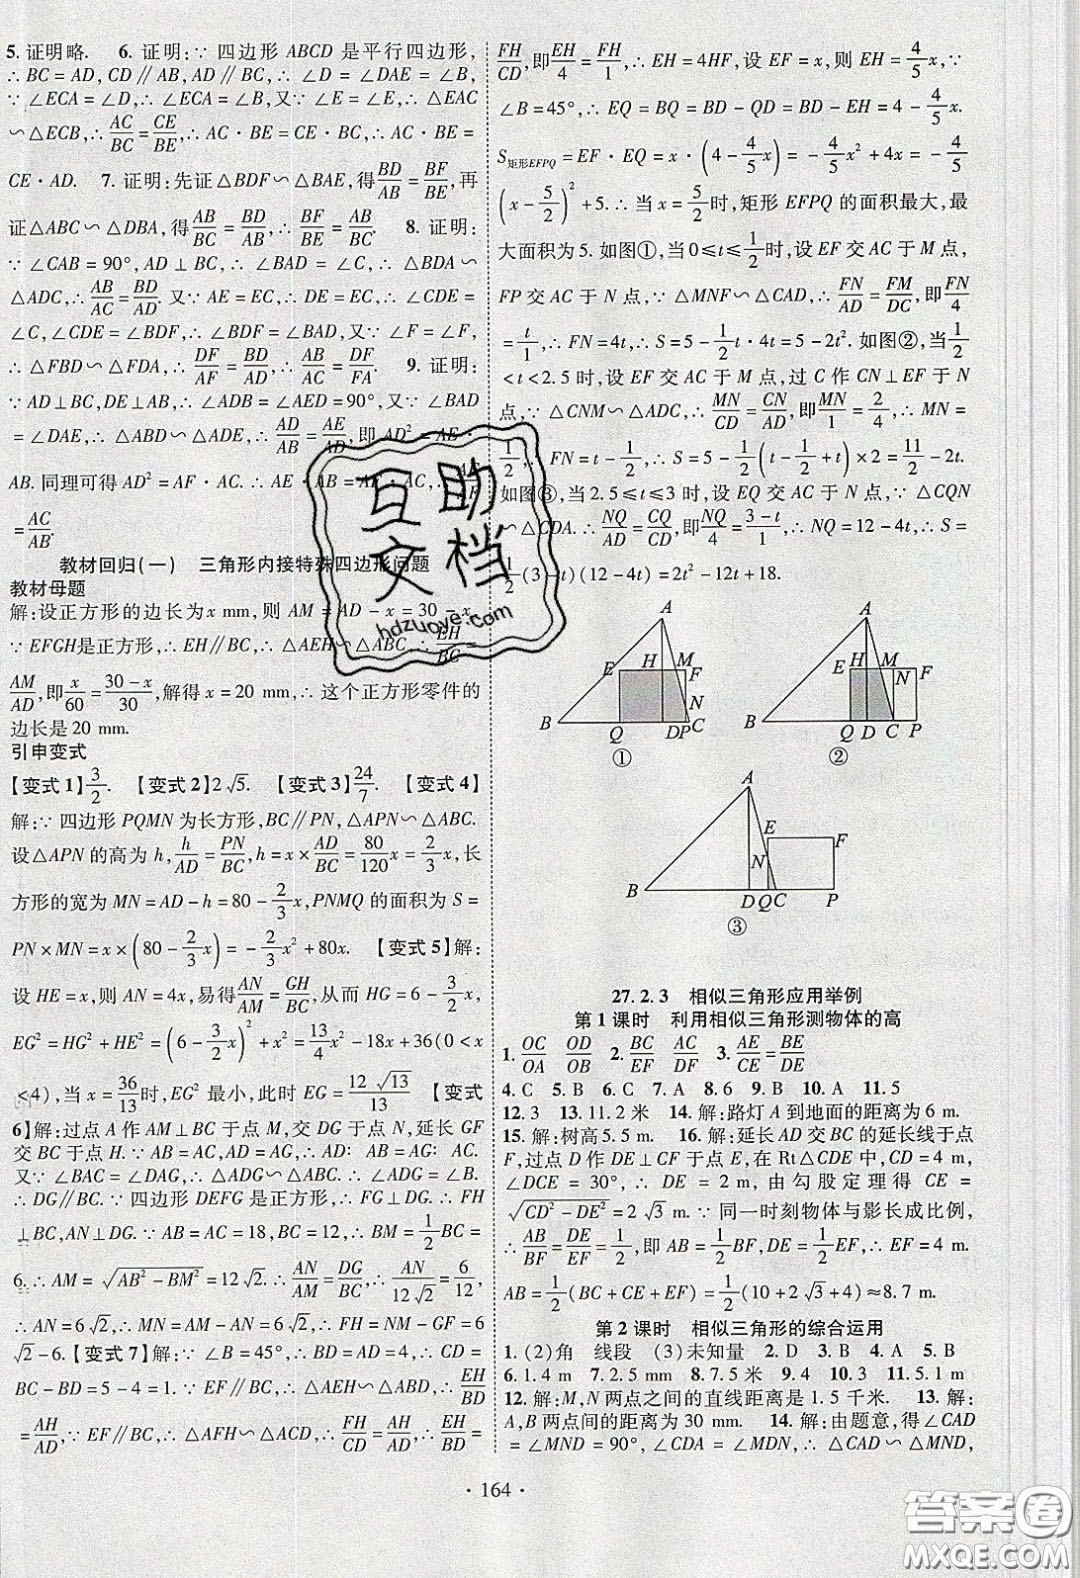 5. 证明略. 6. 证明:∵ 四边形 ABCD 是平行四边形,
∴ BC = AD, CD∥AB, AD∥BC, ∴ ∠D = ∠DAE = ∠B,
∵ ∠ECA = ∠D, ∴ ∠ECA = ∠B, 又∵ ∠E = ∠E, ∴ △EAC
∽ △ECB, ∴ AC/BC = CE/BE, ∴ AC · BE = CE · BC, ∴ AC · BE =
CE · AD. 7. 证明:先证△BDF∽△BAE, 得 BD/AB = BF/BE, 再
证△ABC∽△DBA, 得 AB/BC = BD/AB, ∴ BF/BE = AB/BC. 8. 证明:
∵ ∠CAB = 90°, AD⊥BC, ∴ ∠BAD = ∠C, ∴ △BDA∽
△ADC, ∴ AB/AC = BD/AD. 又∵ AE = EC, ∴ DE = EC, ∴ ∠CDE =
∠C, ∠CDE = ∠BDF, ∴ ∠BDF = ∠BAD, 又∵ ∠F = ∠F,
∴ △FBD∽△FDA, ∴ DF/AF = BD/AD, ∴ AB/AC = DF/FA. 9. 证明:
∵ AD⊥BC, DE⊥AB, ∴ ∠ADB = ∠AED = 90°, ∵ ∠BAD
= ∠DAE, ∴ △ABD∽△ADE, ∴ AD/AB = AE/AD, 即 AD² = AE ·
AB. 同理可得 AD² = AF · AC. ∴ AE · AB = AF · AC, ∴
= AC/AB.
教材回归(一) 三角形内接特殊四边形问题
教材母题
解:设正方形的边长为 x mm, 则 AM = AD - x = 30 - x.
∵ EFGH是正方形, ∴ EH∥BC, ∴ △AEH∽△ABC, ∴ EH/BC =
AM/AD, 即 x/60 = (30 - x)/30, 解得 x = 20 mm, ∴ 这个正方形零件的
边长是 20 mm.
引申变式
【变式 1】3/2. 【变式 2】2√5. 【变式 3】24/7. 【变式 4】
解:∵ 四边形 PQMN 为长方形, BC∥PN, △APN∽△ABC.
设△APN 的高为 h, h/AD = PN/BC, h = x × AD/BC = 80/120 x = 2/3 x, 长
方形的宽为 MN = AD - h = 80 - 2/3 x, PNMQ 的面积为 S =
PN × MN = x × (80 - 2/3 x) = - 2/3 x² + 80x. 【变式 5】解:
设 HE = x, 则 AN = 4x, 易得 AN/AD = GH/BC, 从而 HG = 6 - 3/2 x,
EG² = HG² + HE² = (6 - 3/2 x)² + x² = 13/4 x² - 18x + 36(0 < x
<4), 当 x = 36/13 时, EG² 最小, 此时 EG = 12√13/13 【变式
6】解:过点 A 作 AM⊥BC 于点 M, 交 DG 于点 N, 延长 GF
交 BC 于点 H. ∵ AB = AC, AD = AG, ∴ AD∶ AB = AG∶ AC.
∵ ∠BAC = ∠DAG, ∴ △ADG∽△ABC. ∴ ∠ADG = ∠B.
∴ DG∥BC. ∵ 四边形 DEFG 是正方形, ∴ FG⊥DG. ∴ FH
⊥BC, AN⊥DG. ∵ AB = AC = 18, BC = 12, ∴ BM = 1/2 BC =
6. ∴ AM = √(AB² - BM²) = 12√2. ∴ AN/AM = DG/BC, ∴ AN/12√2 = 6/12,
∴ AN = 6√2, ∴ MN = AM - AN = 6√2, ∴ FH = NM - GF = 6
√2 - 6. 【变式 7】∵ ∠B = 45°, ∴ AD = BD = 4, ∴ CD =
BC - BD = 5 - 4 = 1. ∵ EH∥BC, ∴ △AEH∽△ABD, ∴ EH/BD
= AH/AD, ∵ EF∥BC, ∴ △AFH∽△ACD, ∴ FH/CD = AH/AD, ∴ EH/BD =
FH/CD, 即 EH/4 = FH/1, ∴ EH = 4HF, 设 EF = x, 则 EH = 4/5 x, ∵
∠B = 45°, ∴ EQ = BQ = BD - QD = BD - EH = 4 - 4/5 x.
S矩形EFPQ = EF · EQ = x · (4 - 4/5 x) = - 4/5 x² + 4x = - 4/5
(x - 5/2)² + 5. ∴ 当 x = 5/2 时, 矩形 EFPQ 的面积最大, 最
大面积为 5. 如图①, 当 0 ≤ t ≤ 1/2 时, 设 EF 交 AC 于 M 点,
FP 交 AC 于 N 点, ∵ △MNF∽△CAD, ∴ FN/AD = FM/DC, 即 FN/4
= t/1, ∴ FN = 4t, ∴ S = 5 - 1/2 t · 4t = 5 - 2t². 如图②, 当 1/2
< t < 2.5 时, 设 EF 交 AC 于 M 点, 过 C 作 CN⊥EF 于 N
点, ∵ △CNM∽△ADC, ∴ MN/CD = CN/AD, 即 MN/1 = 2/4, ∴ MN =
1/2, ∴ FN = t - 1/2, ∴ S = 5 - 1/2 (t - 1/2 + t) × 2 = 11/2 - 2t.
如图③, 当 2.5 ≤ t ≤ 3 时, 设 EQ 交 AC 于 N 点, ∵ △CQN
∽△CDA. ∴ NQ/AD = CQ/CD, 即 NQ/4 = (3 - t)/1, ∴ NQ = 12 - 4t, ∴ S =
1/2 (3 - t)(12 - 4t) = 2t² - 12t + 18.
A
E H M F
N
B Q D P C
①
A
H M F
E N
B Q D C P
②
A
E F
N
B D Q C P
③
27.2.3 相似三角形应用举例
第 1 课时 利用相似三角形测物体的高
1. OC/OA OD/OB 2. BC/EF AC/DF 3. AE/CE = BE/DE
4. C 5. B 6. C 7. A 8. 6 9. B 10. A 11. 5
12. 3 13. 11.2 米 14. 解:路灯 A 到地面的距离为 6 m.
15. 解:树高 5.5 m. 16. 解:延长 AD 交 BC 的延长线于点
F, 过点 D 作 DE⊥CF 于点 E, 在 Rt△CDE 中, CD = 4 m,
∠DCE = 30°, ∴ DE = 2 m, 由勾股定理得 CE =
√(CD² - DE²) = 2√3 m. ∵ 同一时刻物体与影长成比例,
∴ AB/BF = DE/EF = 1/2, 即 AB = 1/2 BF, DE = 1/2 EF, ∴ EF = 4 m.
AB = 1/2 (BC + CE + EF) = 1/2 (10 + 2√3 + 4) ≈ 8.7 m.
第 2 课时 相似三角形的综合运用
1. (2)角 线段 (3)未知量 2. D 3. B 4. A 5. B
6. 1.4 m 7. 2.5 mm 8. 7.5 米 9. 4 10. 3 11. 5.1 m
12. 解:M, N 两点之间的直线距离是 1.5 千米. 13. 解:
A, B 两点间的距离为 30 mm. 14. 解:由题意, 得∠CAD
= ∠MND = 90°, ∠CDA = ∠MDN, ∴ △CAD∽△MND,
· 164 ·
互助文档
hdzuoye.com
答案圈
MXQE.COM